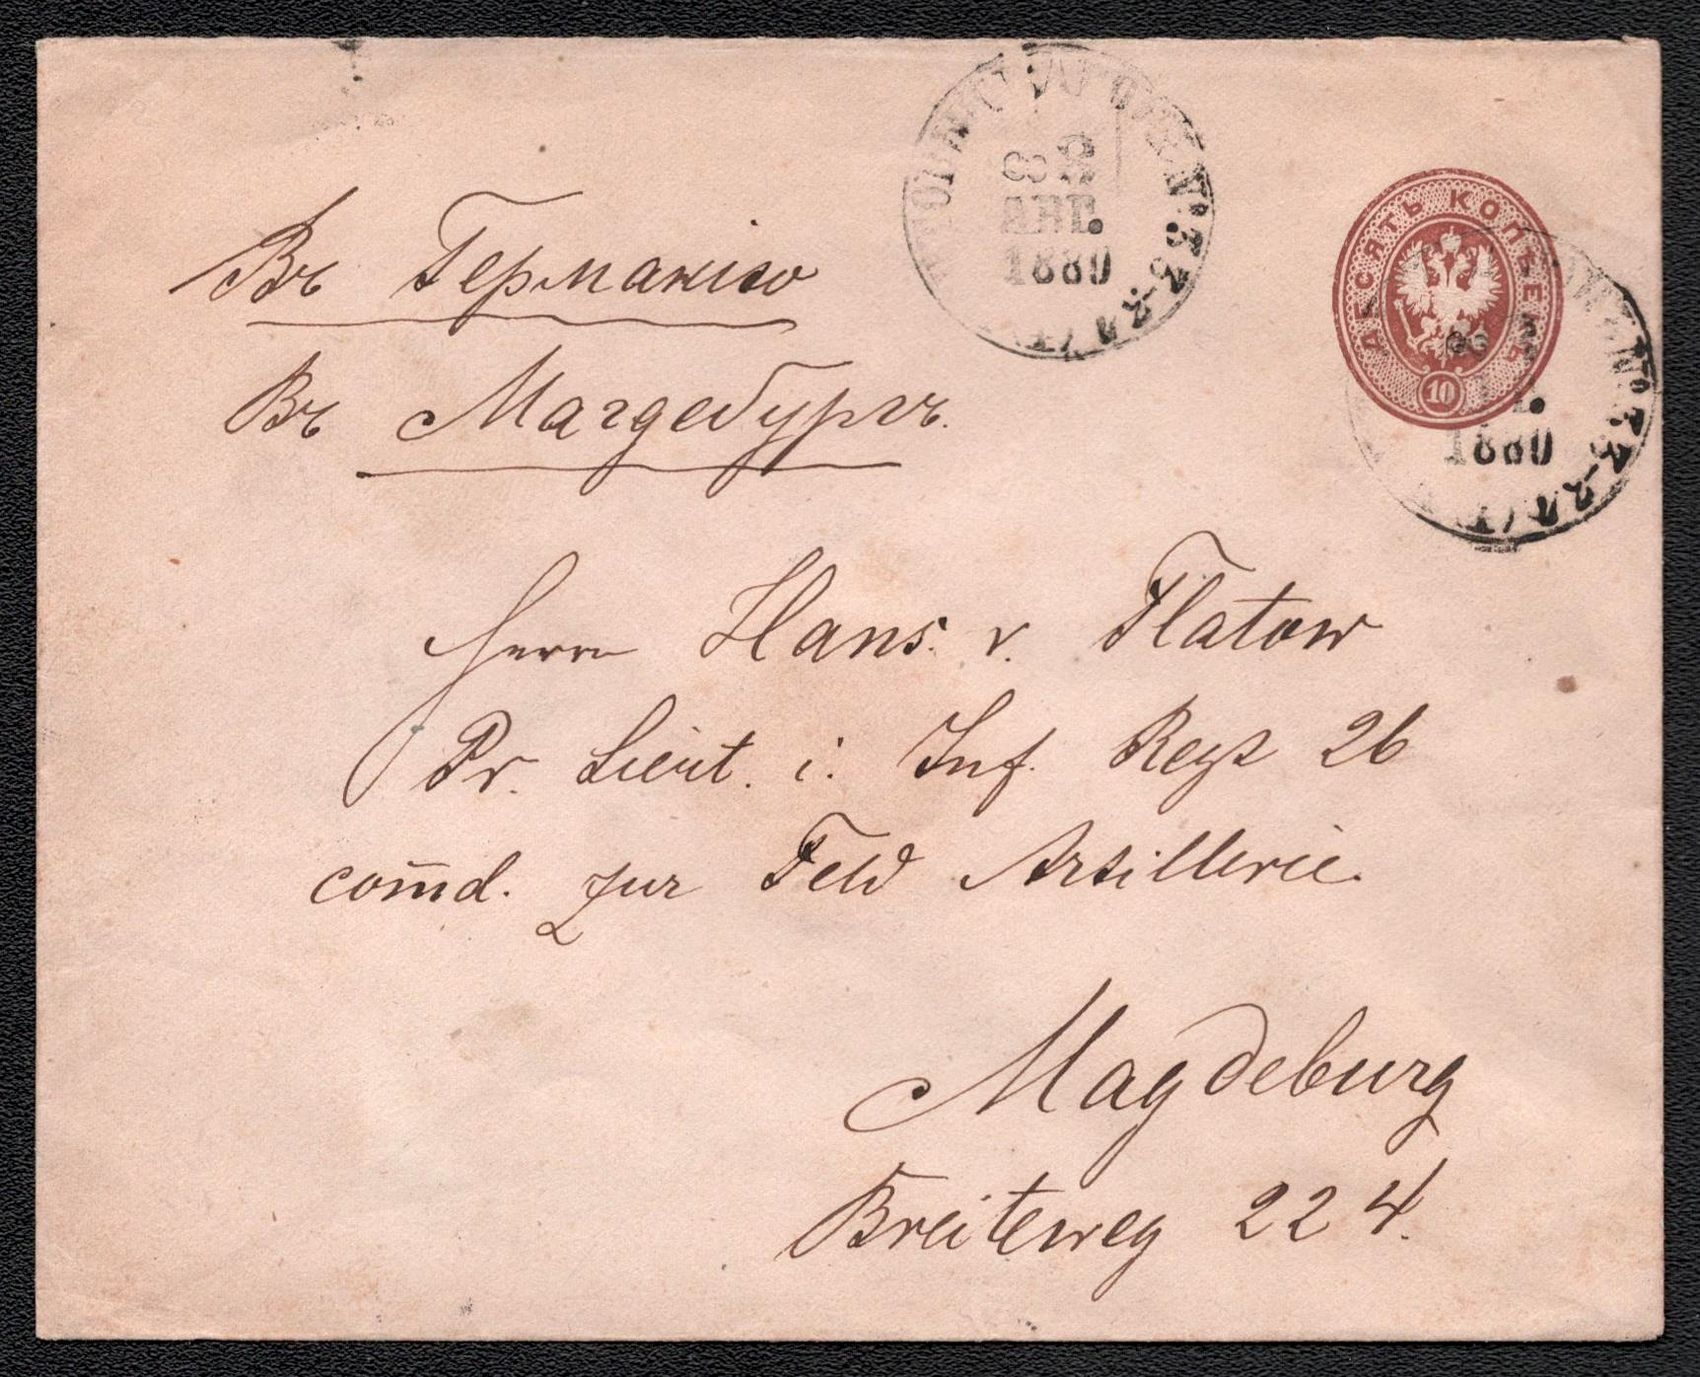 Въ Германiю
Въ Магдебургъ.
Herrn Hans v. Flatow
Pr. Lieut. i. Inf. Regt 26
com̅d. zur Feld Artillerie.
Magdeburg
Breiteweg 224.
8
АВГ.
1880
ДЕСЯТЬ КОПѢЕКЪ
10
8
1880